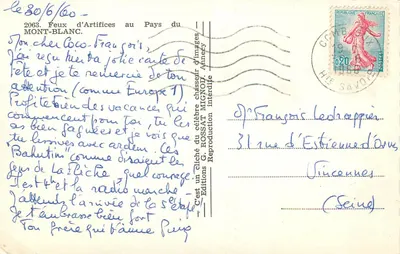 le 30/6/60_
2963. Feux d'Artifices au Pays du
MONT-BLANC.
Mon cher Coco-François,
J'ai reçu hier ta jolie carte de
fête et je te remercie de ton
attention (comme Europe 1)
Profite bien des vacances qui
commencent pour toi, tu les
as bien gagnées et je vois que
tu les avec ardeur. Les
"Bahutins" comme disaient les
gens de La Flèche, quel courage!
et la radio marche
J'attends l'arrivée de la 5e étape
Je t'embrasse bien fort
Ton frère qui t'aime
C'est un cliché du célèbre chasseur d'images
Editions G. ROSSAT MIGNOD, Annecy
Reproduction interdite
0,20
Hte SAVOIE
Mr François Ledrappier
31 rue d'Estienne d'Orves
Vincennes
(Seine)